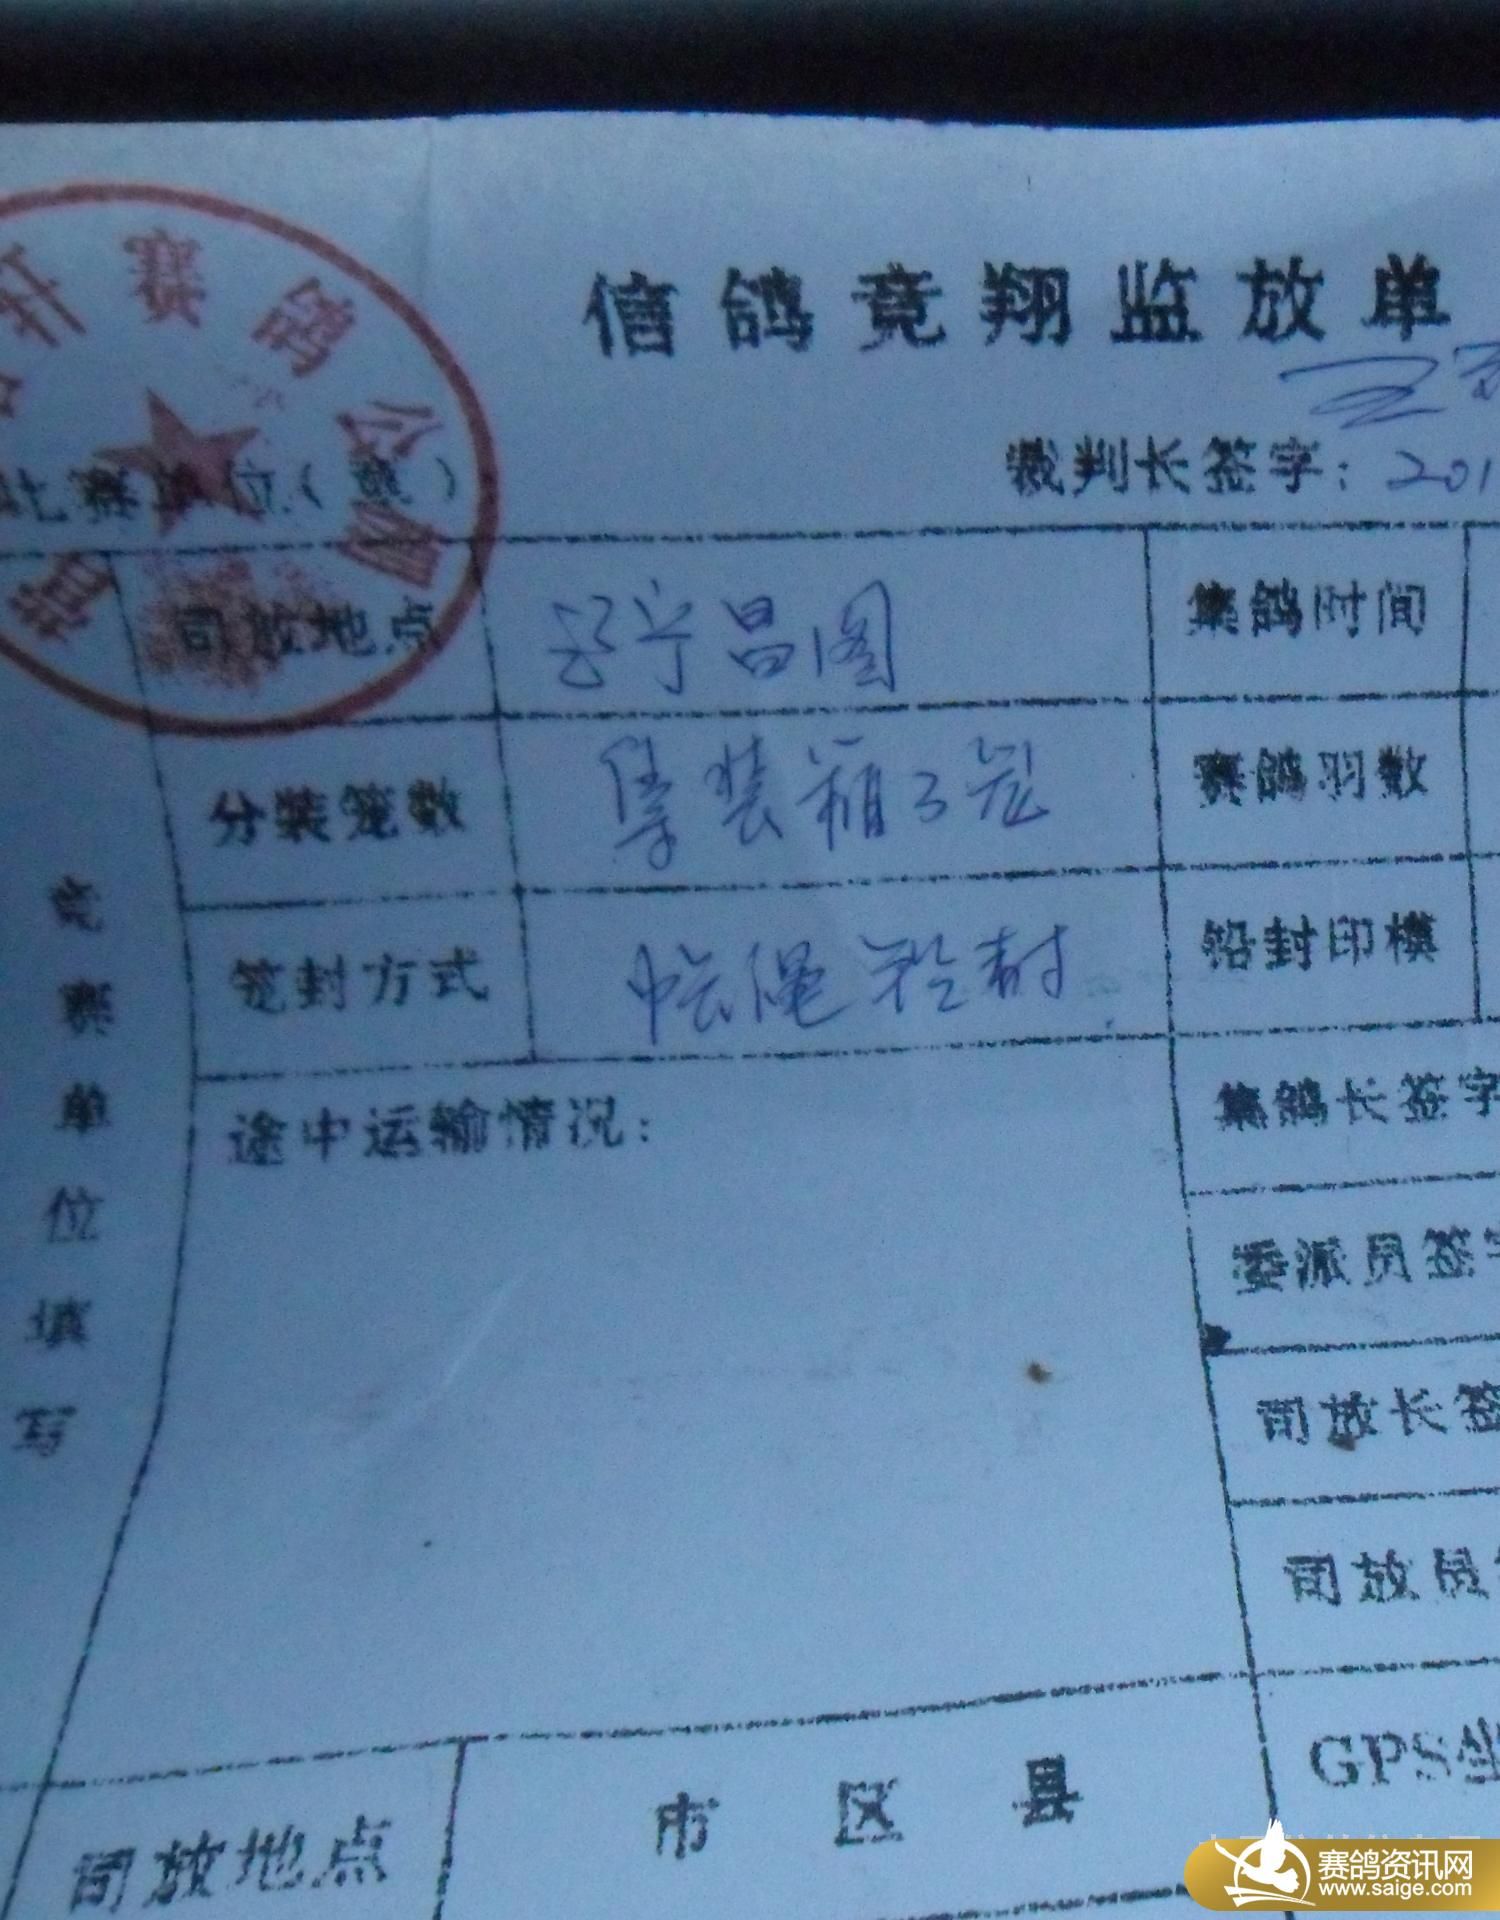 信鸽竟翔监放单
赛鸽公
裁判长签字：201
比赛单位（章）
司放地点 辽宁昌图 集鸽时间
分装笼数 集装箱3笼 赛鸽羽数
笼封方式 绳铅封 铅封印模
竞赛单位填写
途中运输情况：
集鸽长签字
委派员签字
司放长签
司放员
司放地点 市 区 县 GPS坐
赛鸽资讯网
www.saige.com